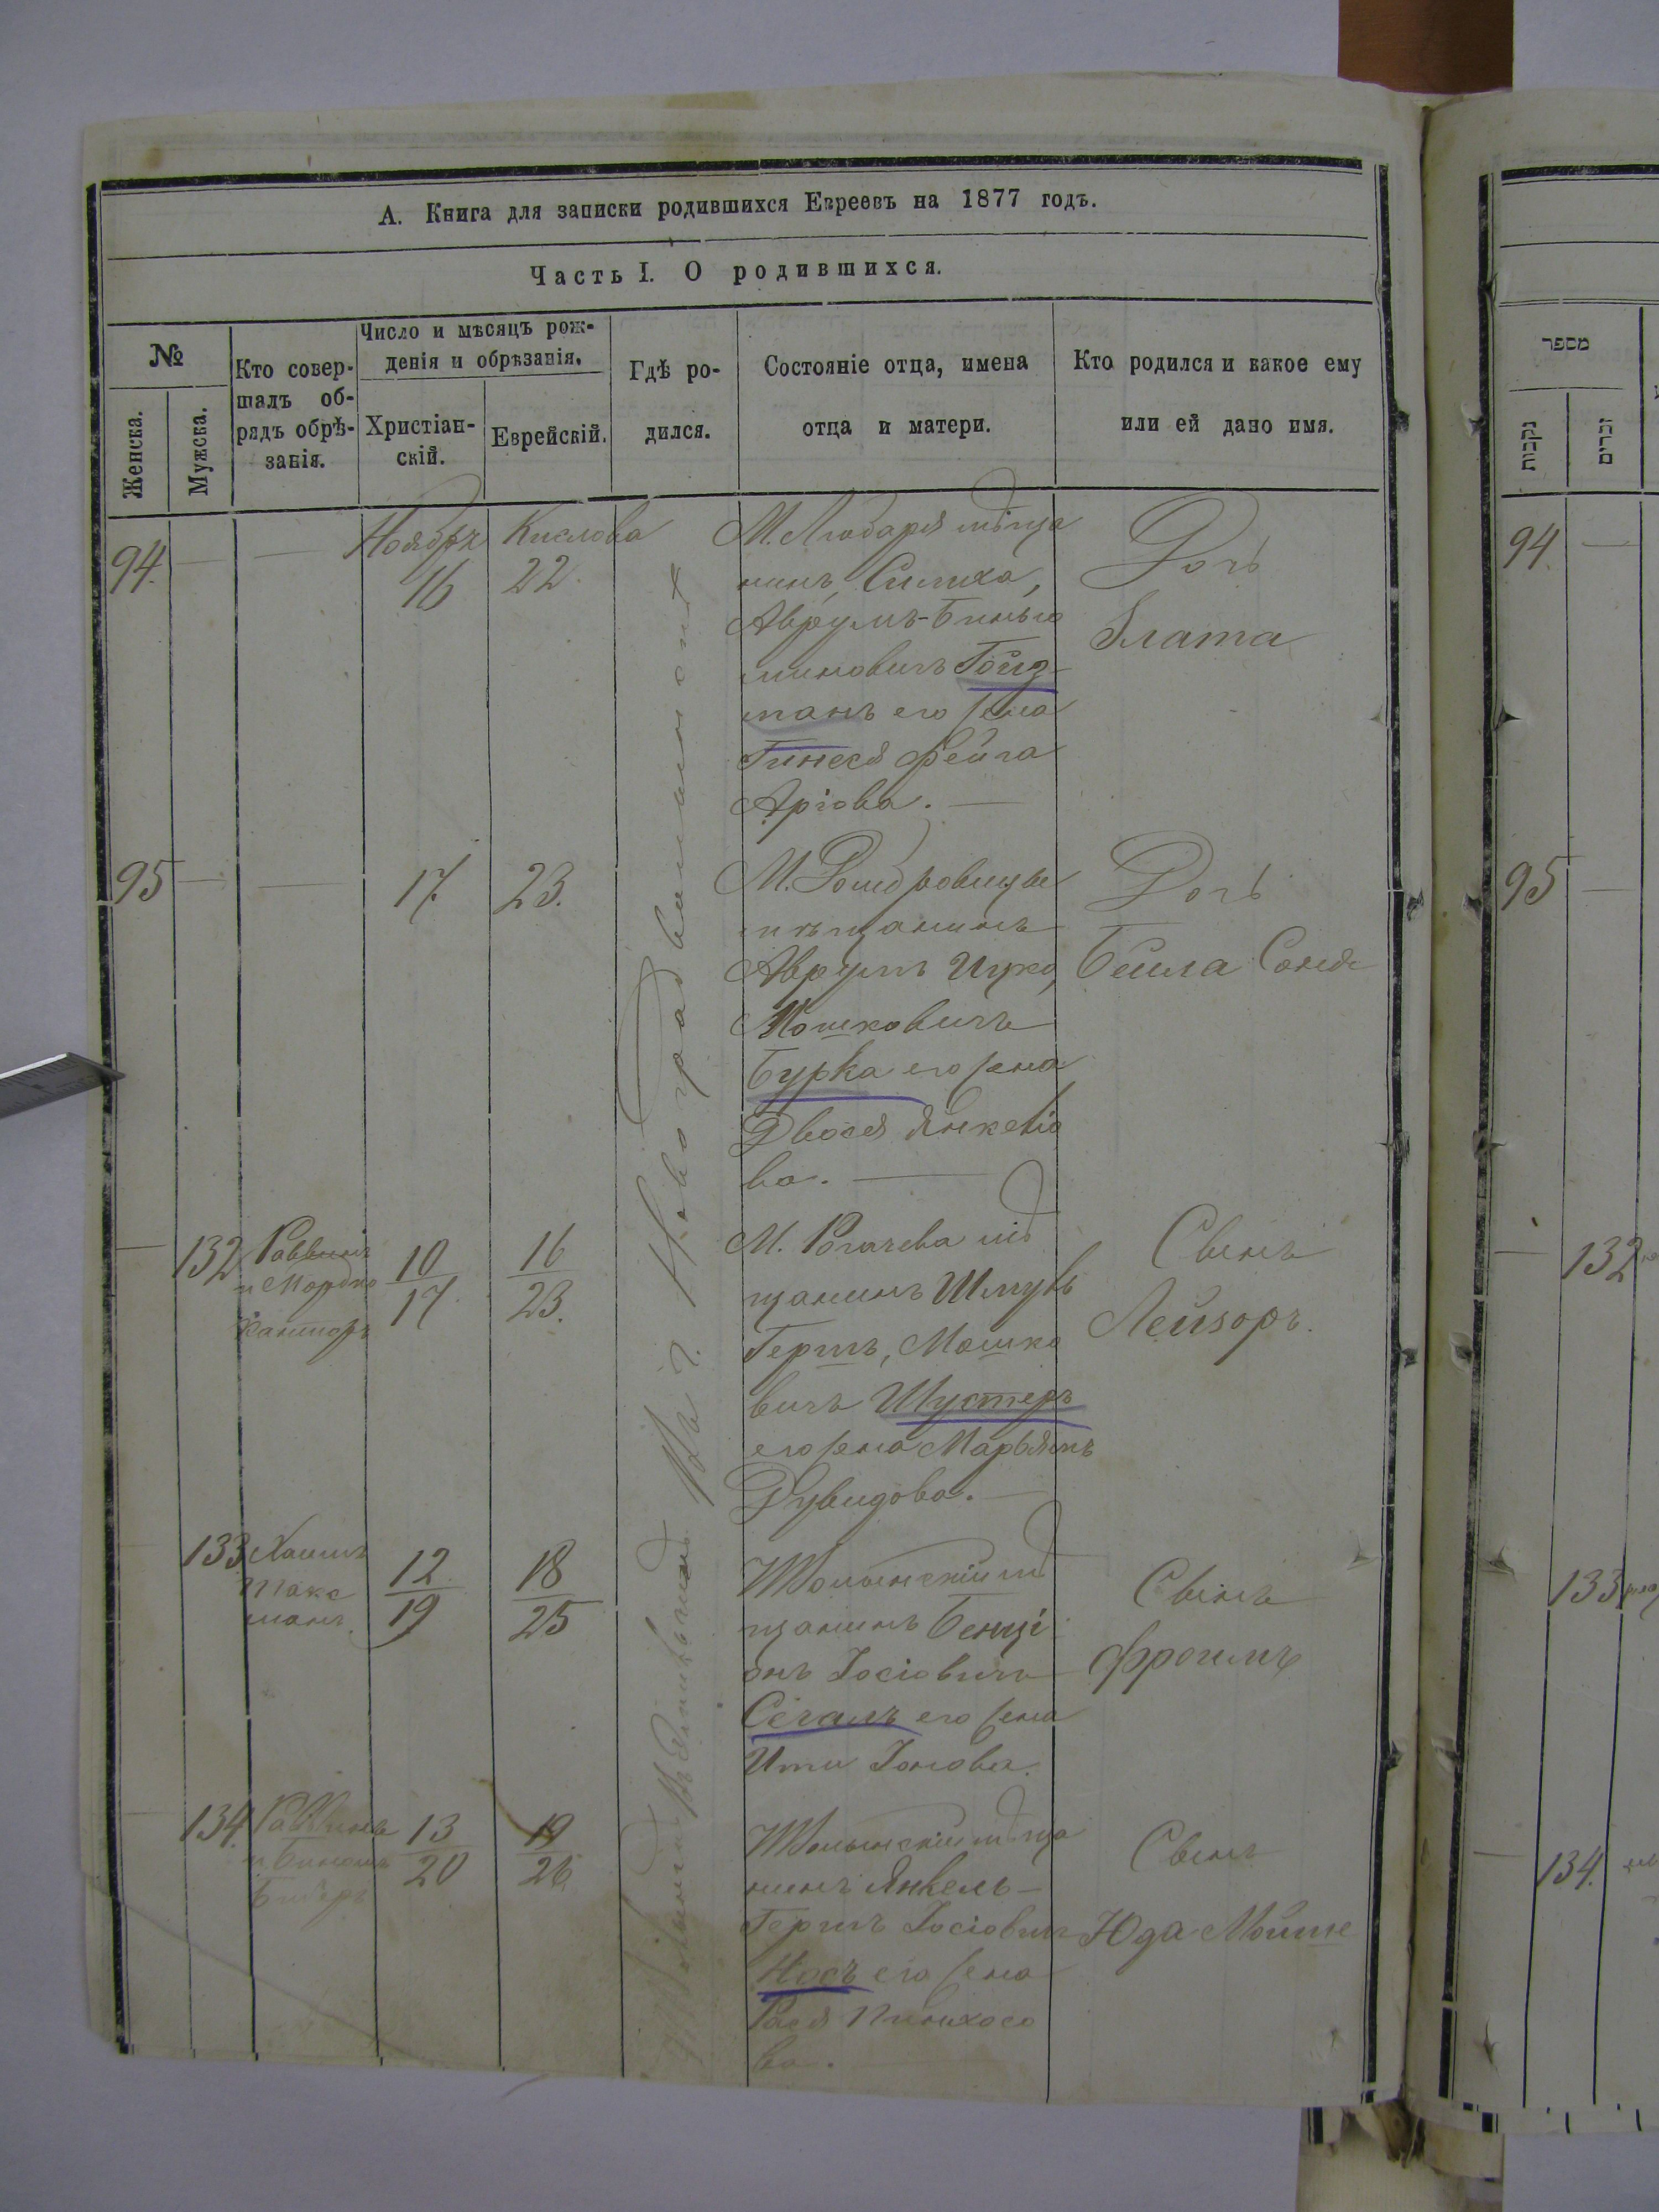 А. Книга для записки родившихся Евреевъ на 1877 годъ.
Часть I. О родившихся.
№
Женска.
Мужска.
Кто совер-
шалъ об-
рядъ обрѣ-
занія.
Число и мѣсяцъ рож-
денія и обрѣзанія.
Христіан-
скій.
Еврейскій.
Гдѣ ро-
дился.
Состояніе отца, имена
отца и матери.
Кто родился и какое ему
или ей дано имя.
94.
Ноябрь
16
Кислова
22.
М. Любаря мѣща
нинъ, Симха,
Аврумъ-Бинья
миновичъ Гойз-
манъ его жена
Гинеся Фейга
Аріова.
Дочь
Злата
95
17.
23.
М.
мѣщанинъ
Аврумъ Ицко,
Мошковичъ
Бурка его жена
Двося Янкеліо
ва.
Дочь
Бейла Соня
132
Раввинъ
и Мордко
Канторъ
10
17.
16
23.
М. Рогачева мѣ
щанинъ Шмуль
Гершъ, Мошко
вичъ Шустеръ
его жена Марьямъ
Дувидова.
Сынъ
Лейзоръ.
133
Хаимъ
Такс
манъ.
12
19
18
25
Волынскій мѣ
щанинъ Бенці
онъ Іосіовичъ
Сегаль его жена
Ити Іонова.
Сынъ
Фроимъ
134.
Раввинъ
и
13
20
19
26
Волынскій мѣща
нинъ Янкель-
Гершъ Іосіовичъ
Носъ его жена
Рася Пинхасо
ва.
Сынъ
Юда-Мойше
Въ г. Новоградволынскѣ
מספר
נקבות
זכרים
94
95
132
133
134.